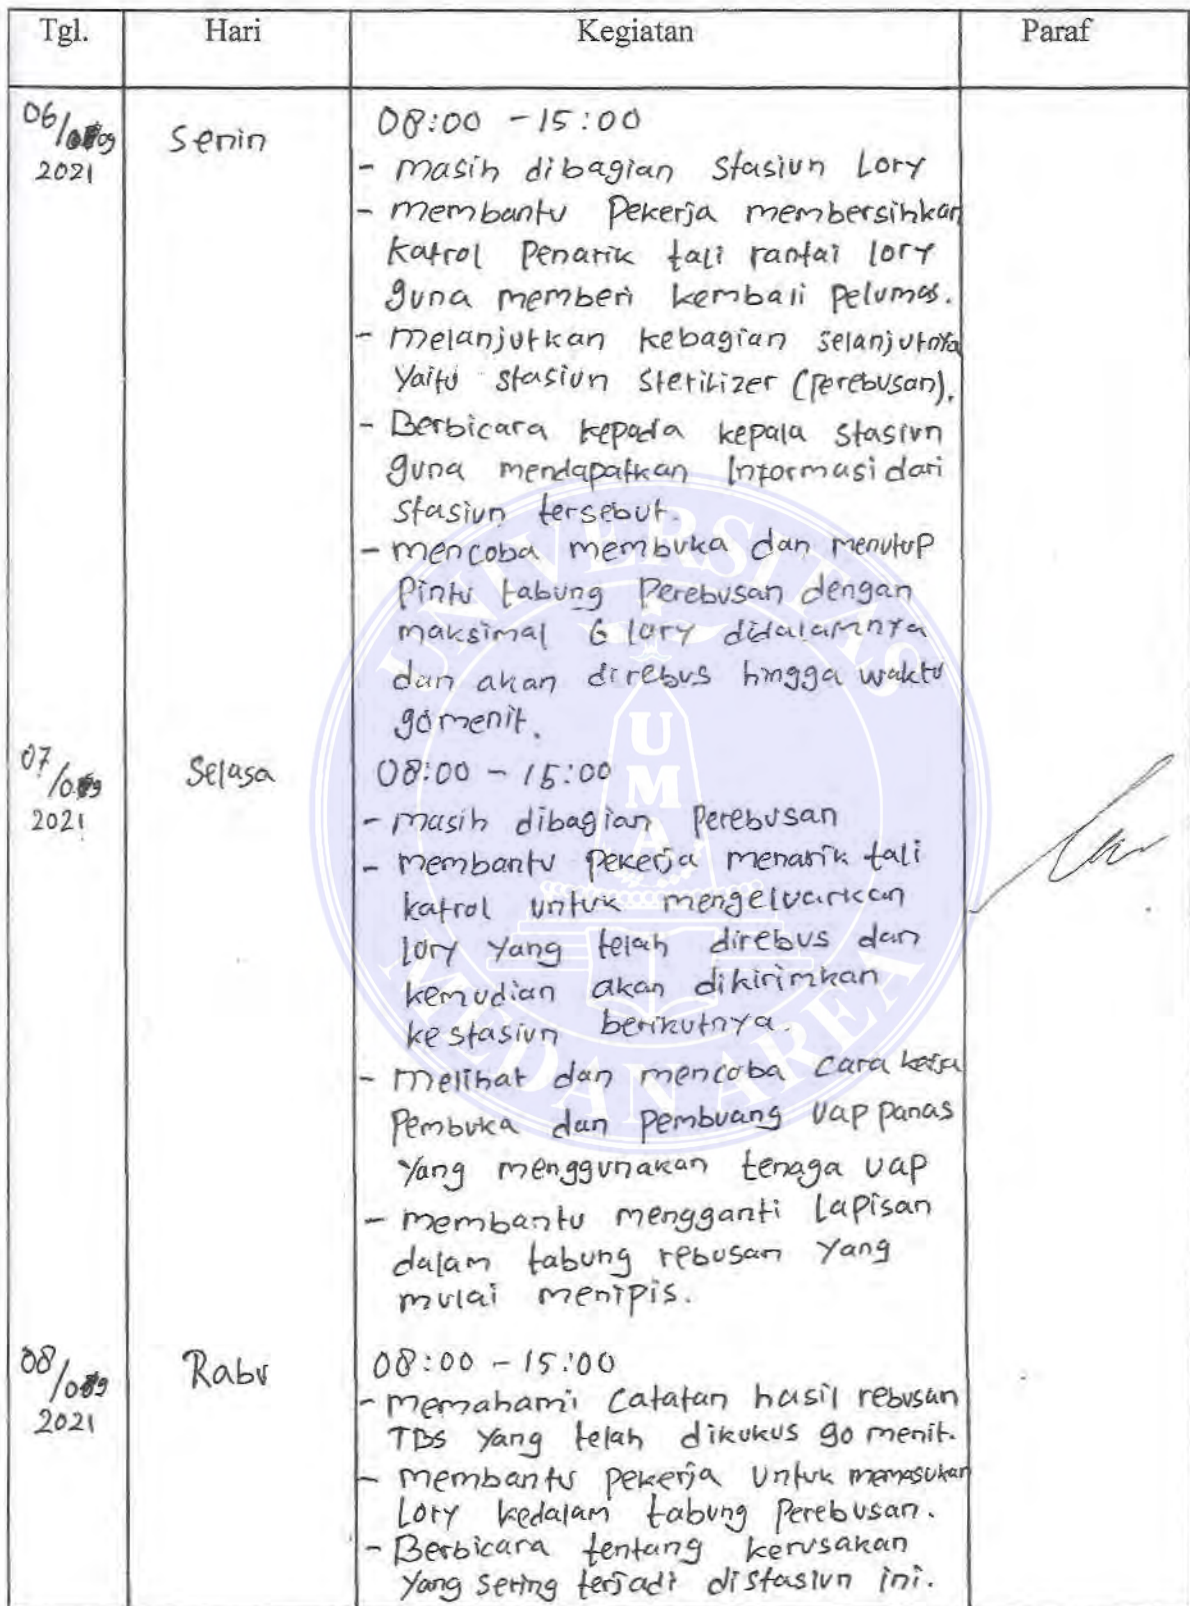 Tgl. Hari Kegiatan Paraf
06/09 Senin 08:00 - 15:00
2021
- masih dibagian stasiun Lory
- membantu Pekerja membersihkan
katrol Penarik tali rantai lory
guna memberi kembali Pelumas.
- melanjutkan kebagian selanjutnya
Yaitu stasiun Sterilizer (Perebusan).
- Berbicara kepada kepala stasiun
guna mendapatkan Informasi dari
stasiun tersebut.
- mencoba membuka dan menutup
Pintu tabung Perebusan dengan
maksimal 6 lory didalamnya
dan akan direbus hingga waktu
90 menit.
07/09 Selasa 08:00 - 15:00
2021
- masih dibagian Perebusan
- membantu Pekerja menarik tali
katrol untuk mengeluarkan
lory Yang telah direbus dan
kemudian akan dikirimkan
ke stasiun berikutnya.
- melihat dan mencoba Cara kerja
Pembuka dan Pembuang Uap panas
Yang menggunakan tenaga uap
- membantu mengganti Lapisan
dalam tabung rebusan Yang
mulai menipis.
08/09 Rabu 08:00 - 15:00
2021
- memahami Catatan hasil rebusan
TBS Yang telah dikukus 90 menit.
- membantu Pekerja Untuk memasukan
Lory kedalam tabung Perebusan.
- Berbicara tentang kerusakan
Yang sering terjadi distasiun ini.
UNIVERSITAS
UMA
MEDAN AREA